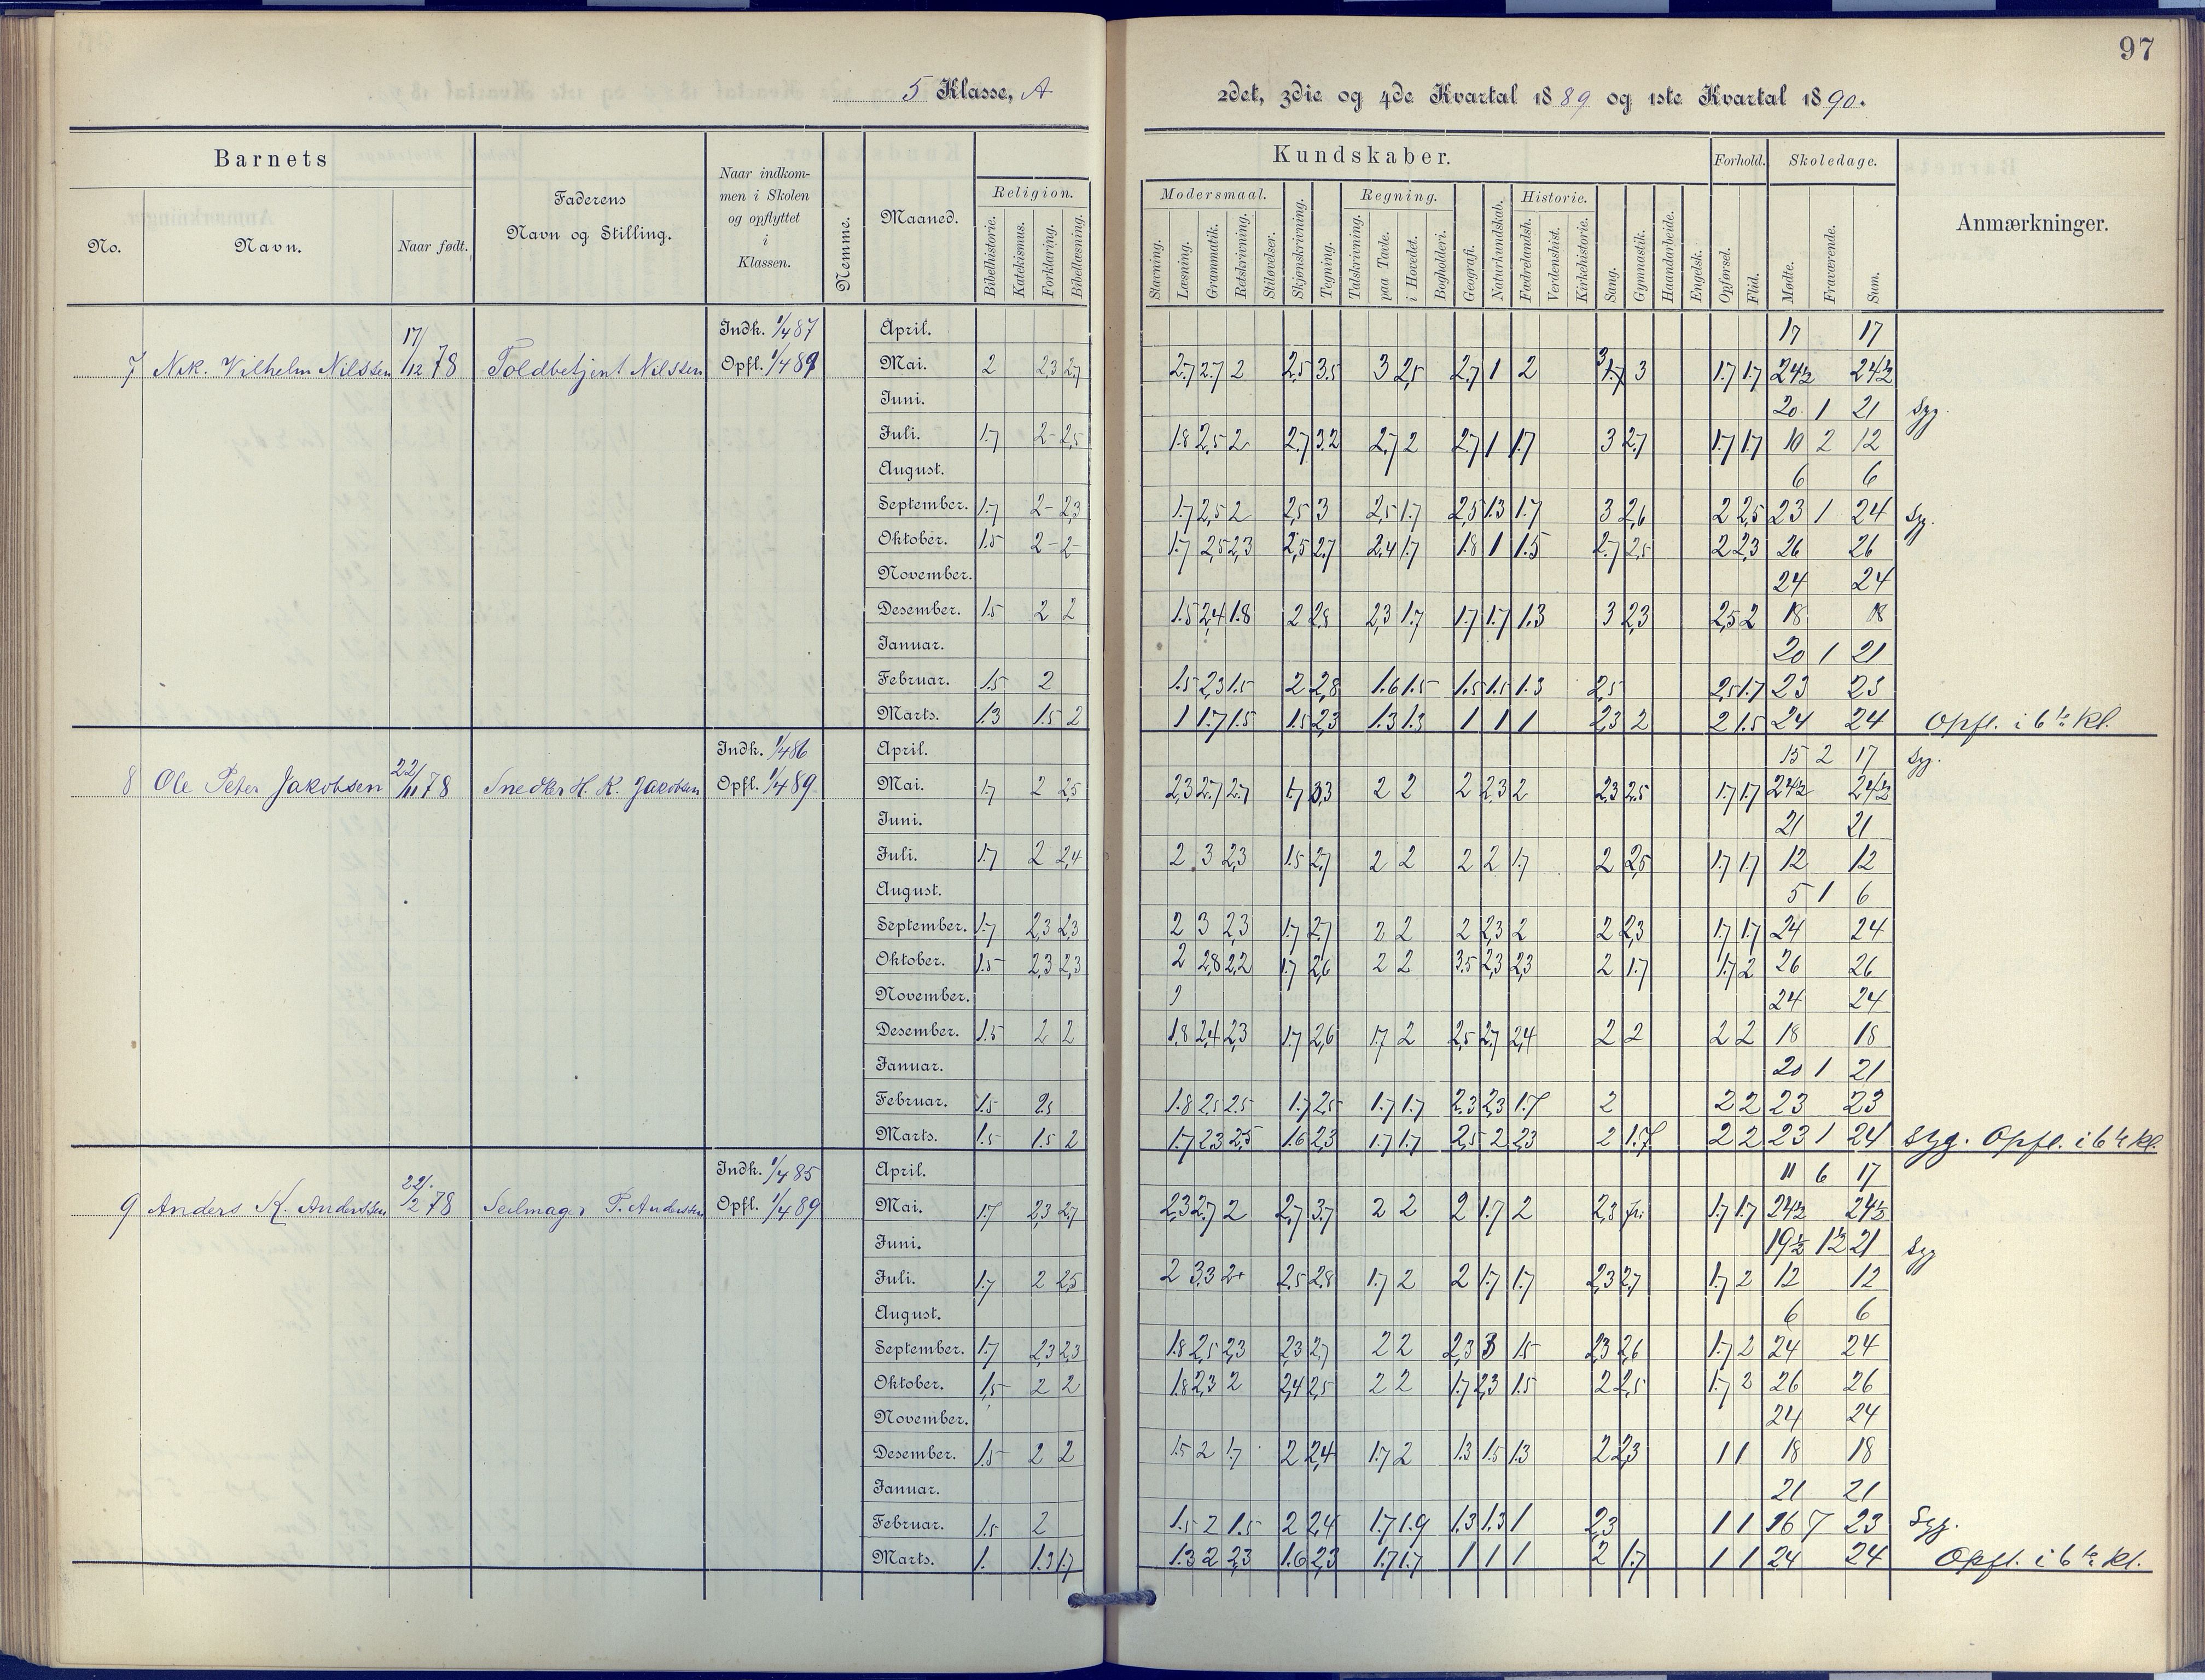 97
5 Klasse, A
2det, 3die og 4de Kvartal 1889 og 1ste Kvartal 1890.
Barnets
Faderens Navn og Stilling.
Naar indkom-
men i Skolen
og opflyttet
i
Klassen.
Nemme.
Maaned.
Religion.
Kundskaber.
Forhold.
Skoledage.
Anmærkninger.
No.
Navn.
Naar født.
Bibelhistorie.
Katekismus.
Forklaring.
Bibellæsning.
Modersmaal.
Stavning.
Læsning.
Grammatik.
Retskrivning.
Stiløvelser.
Skjønskrivning.
Tegning.
Regning.
Talskrivning.
paa Tavle.
i Hovedet.
Bogholderi.
Geografi.
Naturkundskab.
Historie.
Fædrelandsh.
Verdenshist.
Kirkehistorie.
Sang.
Gymnastik.
Haandarbeide.
Engelsk.
Opførsel.
Flid.
Mødte.
Fraværende.
Sum.
7 Nik. Vilhelm Nilssen 17/12 78 Toldbetjent Nilssen Indk. 1/4 87 Opfl. 1/4 89
April. 17 17
Mai. 2 2,3 2,7 2,7 2,7 2 2,5 3,5 3 2,5 2,7 1 2 3 1,7 3 1,7 1,7 24½ 24½
Juni. 20 1 21 Syg.
Juli. 1,7 2- 2,5 1,8 2,5 2 2,7 3,2 2,7 2 2,7 1 1,7 3 2,7 1,7 1,7 10 2 12
August. 6 6
September. 1,7 2- 2,3 1,7 2,5 2 2,5 3 2,5 1,7 2,5 1,3 1,7 3 2,6 2 2,5 23 1 24 Syg.
Oktober. 1,5 2- 2- 1,7 2,5 2,3 2,5 2,7 2,4 1,7 1,8 1 1,5 2,7 2,5 2 2,3 26 26
November. 24 24
Desember. 1,5 2 2 1,5 2,4 1,8 2 2,8 2,3 1,7 1,7 1,7 1,3 3 2,3 2,5 2 18 18
Januar. 20 1 21
Februar. 1,5 2 1,5 2,3 1,5 2 2,8 1,6 1,5 1,5 1,5 1,3 2,5 2,5 1,7 23 23
Marts. 1,3 1,5 2 1 1,7 1,5 1,5 2,3 1,3 1,3 1 1 1 2,3 2 2 1,5 24 24 Opfl. i 6te kl.
8 Ole Peter Jakobsen 22/11 78 Snedker H. K. Jacobsen Indk. 1/4 86 Opfl. 1/4 89
April. 15 2 17 Syg.
Mai. 1,7 2 2,5 2,3 2,7 2,7 1,7 3,3 2 2 2 2,3 2 2,3 2,5 1,7 1,7 24½ 24½
Juni. 21 21
Juli. 1,7 2 2,4 2 3 2,3 1,5 2,7 2 2 2 2 1,7 2 2,5 1,7 1,7 12 12
August. 5 1 6
September. 1,7 2,3 2,3 2 3 2,3 1,7 2,7 2 2 2 2,3 2 2 2,3 1,7 1,7 24 24
Oktober. 1,5 2,3 2,3 2 2,8 2,2 1,7 2,6 2 2 3,5 2,3 2,3 2 1,7 1,7 2 26 26
November. 24 24
Desember. 1,5 2 2 1,8 2,4 2,3 1,7 2,6 1,7 2 2,5 2,7 2,4 2 2 2 2 18 18
Januar. 20 1 21
Februar. 1,5 2,5 1,8 2,5 2,5 1,7 2,5 1,7 1,7 2,3 2,3 1,7 2 2 2 23 23
Marts. 1,5 1,5 2 1,7 2,3 2,5 1,6 2,3 1,7 1,7 2,5 2 2,3 2 1,7 2 2 23 1 24 Syg. Opfl. i 6te kl.
9 Anders K. Anderssen 22/2 78 Seilmager P. Anderssen Indk. 1/4 85 Opfl. 1/4 89
April. 11 6 17
Mai. 1,7 2,3 2,7 2,3 2,7 2 2,7 3,7 2 2 2 1,7 2 2,3 fri. 1,7 1,7 24½ 24½
Juni. 19½ 1½ 21 Syg
Juli. 1,7 2 2,5 2 3,3 2+ 2,5 2,8 1,7 2 2 1,7 1,7 2,3 2,7 1,7 2 12 12
August. 6 6
September. 1,7 2,3 2,3 1,8 2,5 2,3 2,3 2,7 2 2 2,3 3 1,5 2,3 2,6 1,7 2 24 24
Oktober. 1,5 2 2 1,8 2,3 2 2,4 2,5 2 2 1,7 2,3 1,5 2 2,5 1,7 2 26 26
November. 24 24
Desember. 1,5 2 2 1,5 2 1,7 2 2,4 1,7 2 1,3 1,5 1,3 2 2,3 1 1 18 18
Januar. 21 21
Februar. 1,5 2 1,5 2 1,5 2 2,4 1,7 1,9 1,3 1,3 1 2,3 1 1 16 7 23 Syg.
Marts. 1. 1,3 1,7 1,3 2 2,3 1,6 2,3 1,7 1,7 1 1 1 2 1,7 1 1 24 24 Opfl. i 6te kl.